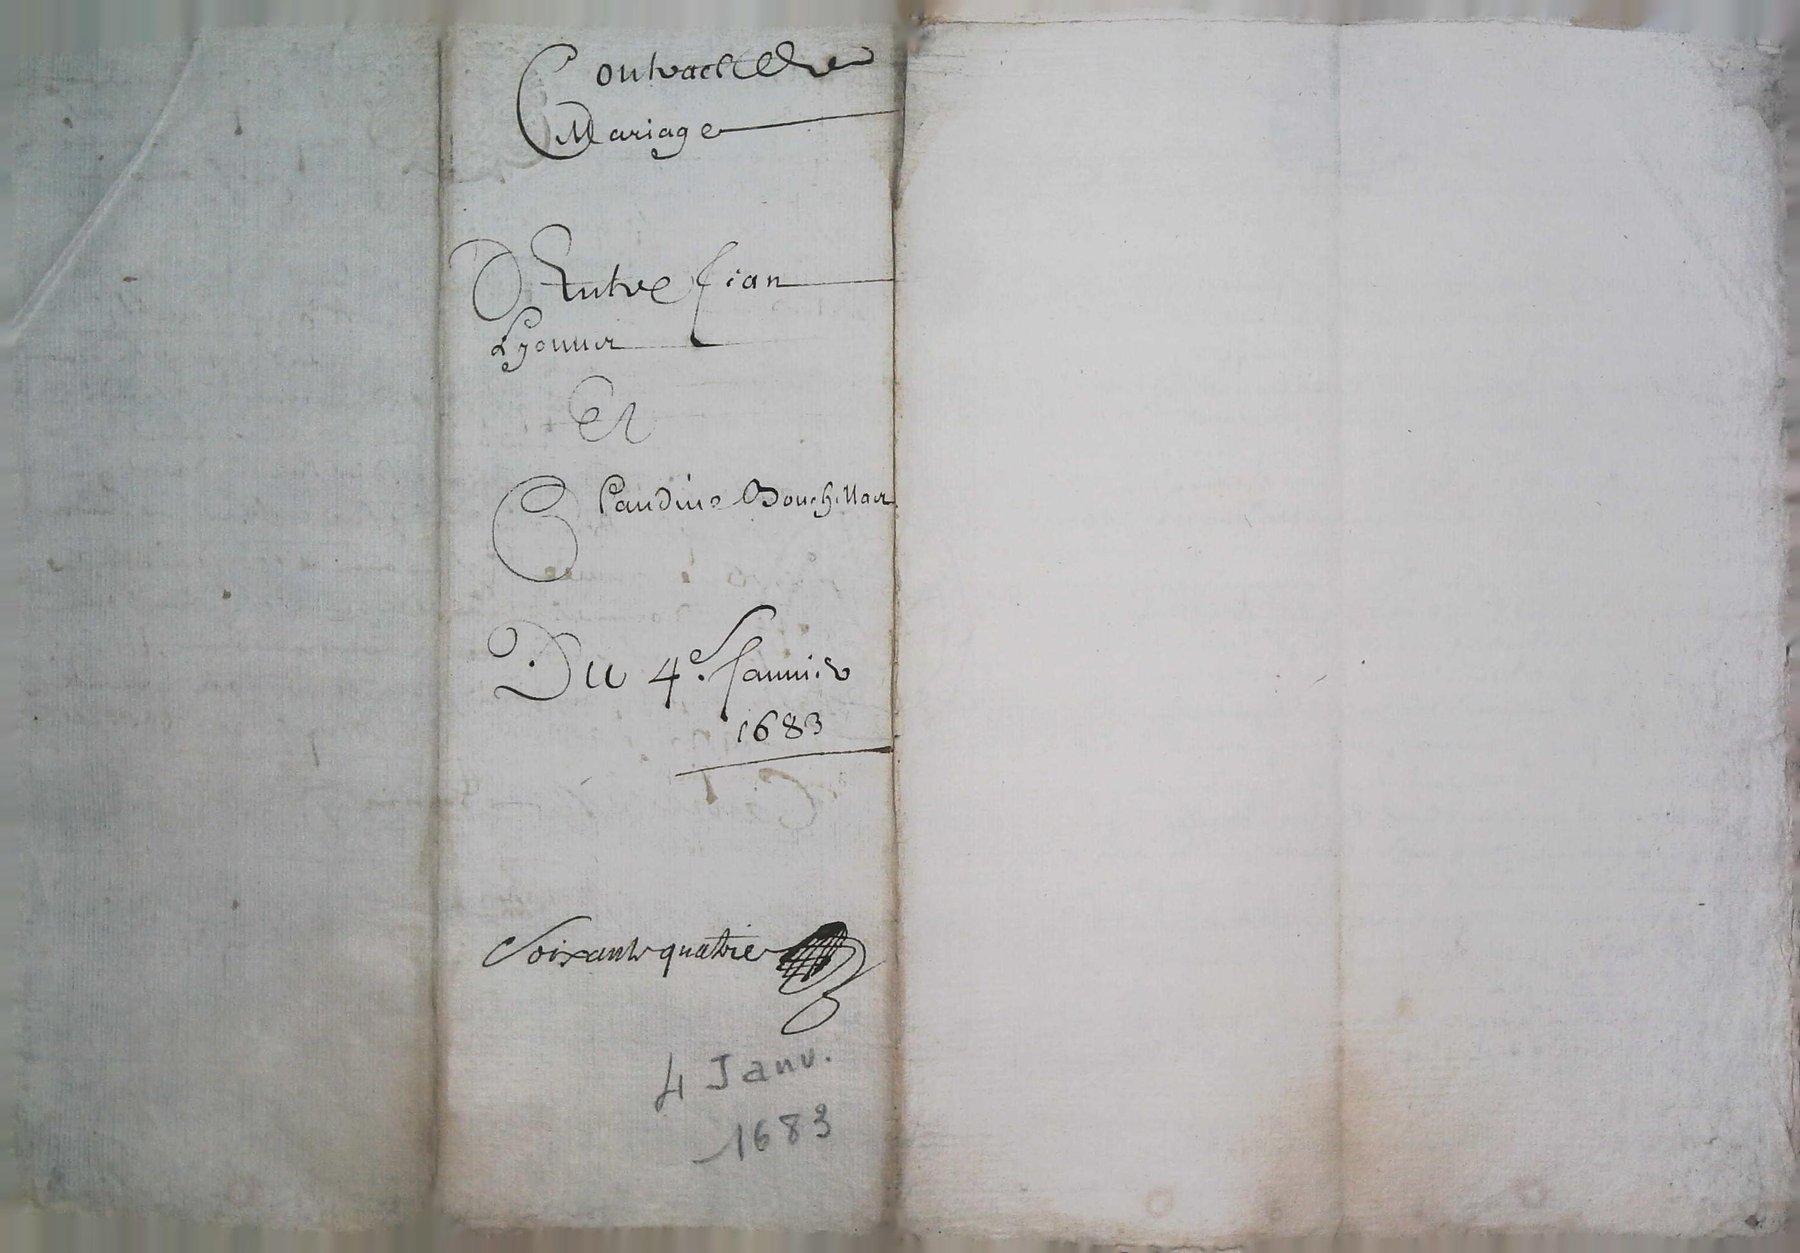 Contract de
Mariage
Entre Jean
Lyonnet
Et
Claudine Bouchillact
Du 4e. Janvier
1683
Soixante quatrie
4 Janv.
1683